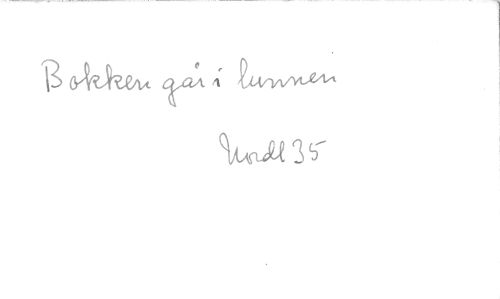 Bokken går i lunnen
Nordl 35